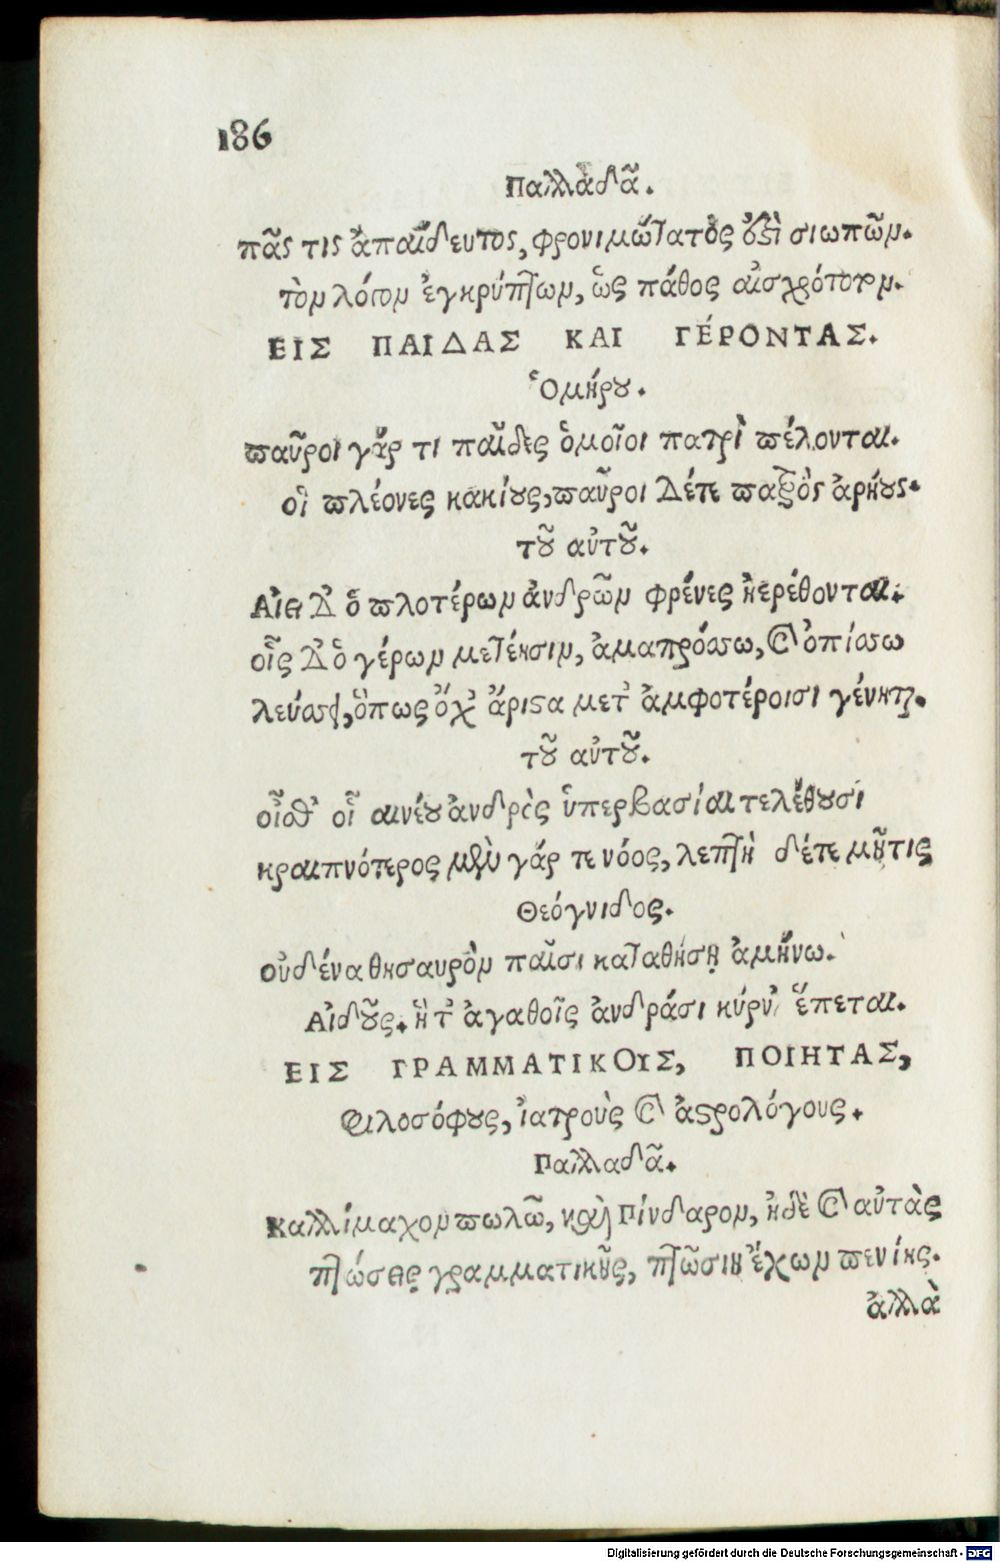 186
Παλλαδᾶ.
πᾶς τις ἀπαίδευτος, φρονιμώτατός ὅξι σιωπῶν.
τὸν λόγον ἐγκρύπτων, ὡς πάθος αἰσχρότατον.
ΕΙΣ ΠΑΙΔΑΣ ΚΑΙ ΓΈΡΟΝΤΑΣ.
Ὁμήρου.
παῦροι γάρ τι παῖδες ὁμοῖοι πατρὶ πέλονται.
οἱ πλέονες κακίους, παῦροι δέτε πατρὸς ἀρήους.
τοῦ αὐτοῦ.
Αἰεὶ δ' ὁπλοτέρων ἀνδρῶν φρένες ἠερέθονται.
οἷς δ' ὁ γέρων μετέησιν, ἁμαπρόσσω, καὶ ὀπίσσω
λεύσσει, ὅπως ὄχ' ἄριστα μετ' ἀμφοτέροισι γένηται.
τοῦ αὐτοῦ.
οἶσθ' οἷ αινέου ἀνδρὸς ὑπερβασίαι τελέθουσι
κραιπνότερος μὲν γάρ τε νόος, λεπτὴ δέτε μῆτις
Θεόγνιδος.
οὐδένα θησαυρὸν παῖσι καταθήσῃ ἀμήνω.
Αἰδοῦς. ἥτ' ἀγαθοῖς ἀνδράσι κύρν' ἕπεται.
ΕΙΣ ΓΡΑΜΜΑΤΙΚΟΙΣ, ΠΟΙΗΤΑΣ,
Φιλοσόφους, ἰατροὺς καὶ ἀστρολόγους.
Παλλαδᾶ.
Καλλίμαχον πωλῶ, καὶ Πίνδαρον, ἠδὲ καὶ αὐτὰς
πτώσεις γραμματικῆς, πτῶσιν ἔχων πενίης.
ἀλλὰ
Digitalisierung gefördert durch die Deutsche Forschungsgemeinschaft - DFG